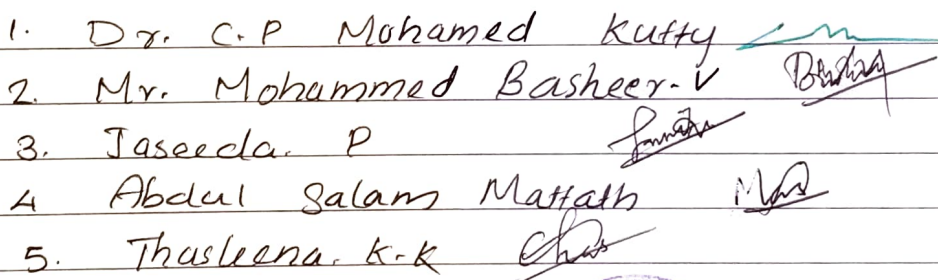 1. Dr. C.P Mohamed Kutty
2. Mr. Mohammed Basheer.V
3. Jaseeda. P
4 Abdul Salam Mattath
5. Thasleena. K.K